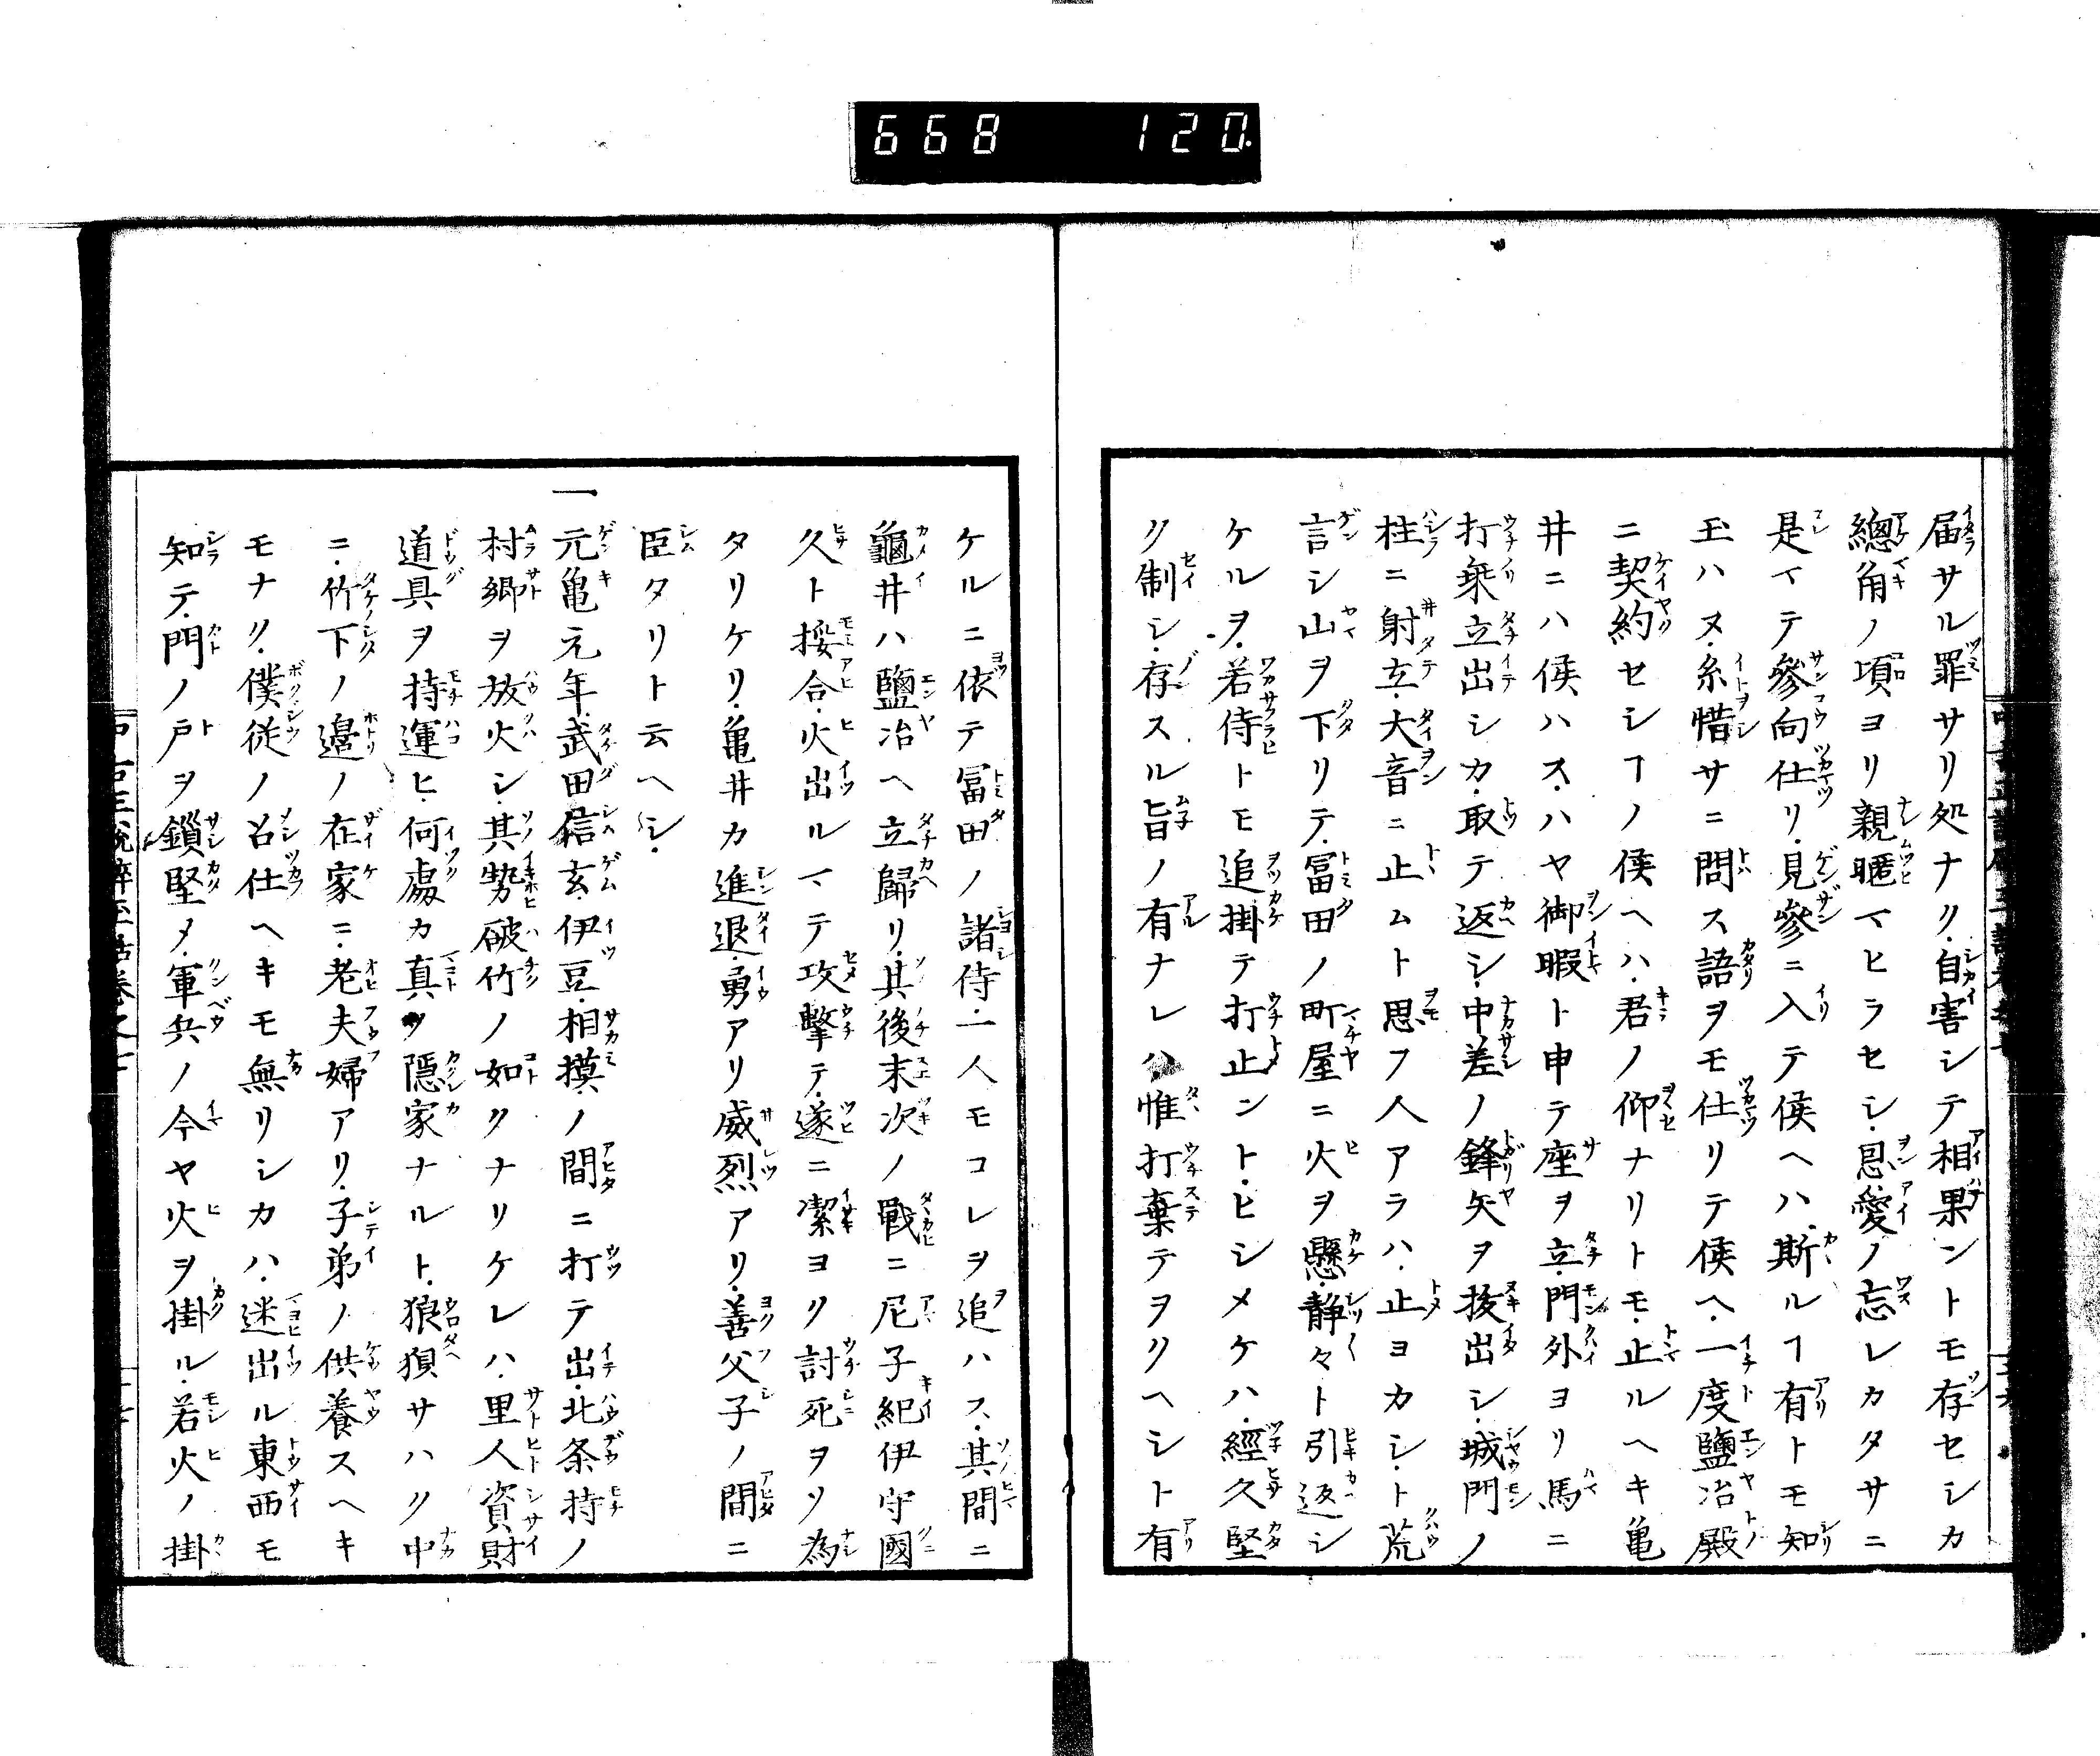 668 120
届サル罪サリ処ナク自害シテ相果ントモ存セシカ
總角ノ項ヨリ親暱マヒラセシ恩愛ノ忘レカタサニ
是マテ參向仕リ見參ニ入テ侯ヘハ斯ルヿ有トモ知
玉ハヌ糸惜サニ問ス語ヲモ仕リテ侯ヘ一度鹽冶殿
ニ契約セシヿノ侯ヘハ君ノ仰ナリトモ止ルヘキ亀
井ニハ侯ハスハヤ御暇ト申テ座ヲ立門外ヨリ馬ニ
打乗立出シカ取テ返シ中差ノ鋒矢ヲ抜出シ城門ノ
柱ニ射立大音ニ止ムト思フ人アラハ止ヨカシト荒
言シ山ヲ下リテ冨田ノ町屋ニ火ヲ懸静々ト引返シ
ケルヲ若侍トモ追掛テ打止ントヒシメケハ經久堅
ク制シ存スル旨ノ有ナレハ惟打棄テヲクヘシト有
ケルニ依テ冨田ノ諸侍一人モコレヲ追ハス其間ニ
龜井ハ鹽冶ヘ立歸リ其後末次ノ戰ニ尼子紀伊守國
久ト挼合火出ルマテ攻撃テ遂ニ潔ヨク討死ヲソ為
タリケリ亀井カ進退勇アリ威烈アリ善父子ノ間ニ
臣タリト云ヘシ
一元亀元年武田信玄伊豆相摸ノ間ニ打テ出北条持ノ
村郷ヲ放火シ其勢破竹ノ如クナリケレハ里人資財
道具ヲ持運ヒ何處カ真ヲ隠家ナルト狼狽サハク中
ニ竹下ノ邉ノ在家ニ老夫婦アリ子弟ノ供養スヘキ
モナク僕従ノ召仕ヘキモ無リシカハ迷出ル東西モ
知テ門ノ戸ヲ鎖堅メ軍兵ノ今ヤ火ヲ掛ル若火ノ掛